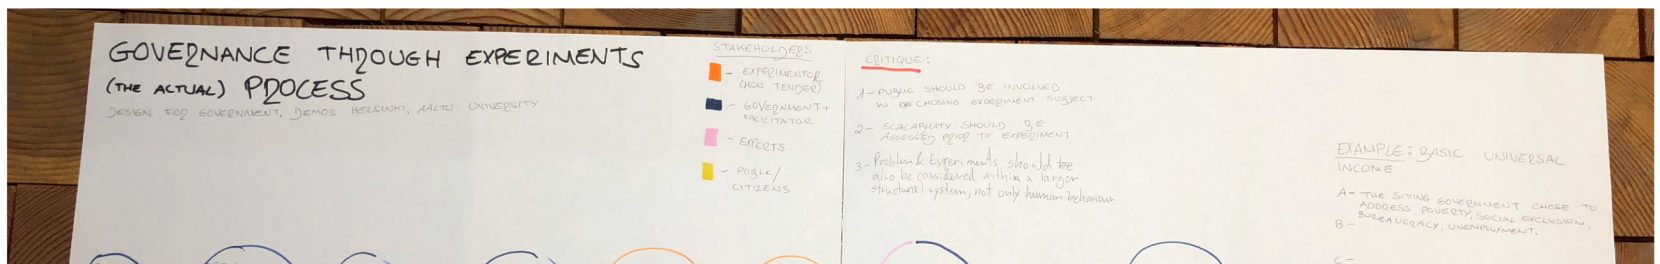 GOVERNANCE THROUGH EXPERIMENTS
(THE ACTUAL) PROCESS
DESIGN FOR GOVERNMENT, DEMOS HELSINKI, AALTO UNIVERSITY
STAKEHOLDERS
- EXPERIMENTOR
(NON TENDER)
- GOVERNMENT +
FACILITATOR
- EXPERTS
- PUBLIC/
CITIZENS
CRITIQUE:
1- PUBLIC SHOULD BE INVOLVED
CHOSING EXPERIMENT SUBJECT
2- SCALABILITY SHOULD BE
ASSESSED PRIOR TO EXPERIMENT
3- Problem & Experiments should
also be considered within a larger
structural system, not only human behaviour
EXAMPLE: BASIC UNIVERSAL
INCOME
A- THE SITING GOVERNMENT CHOSE TO
ADDRESS POVERTY, SOCIAL EXCLUSION,
BUREAUCRACY, UNEMPLOYMENT.
B-
C-